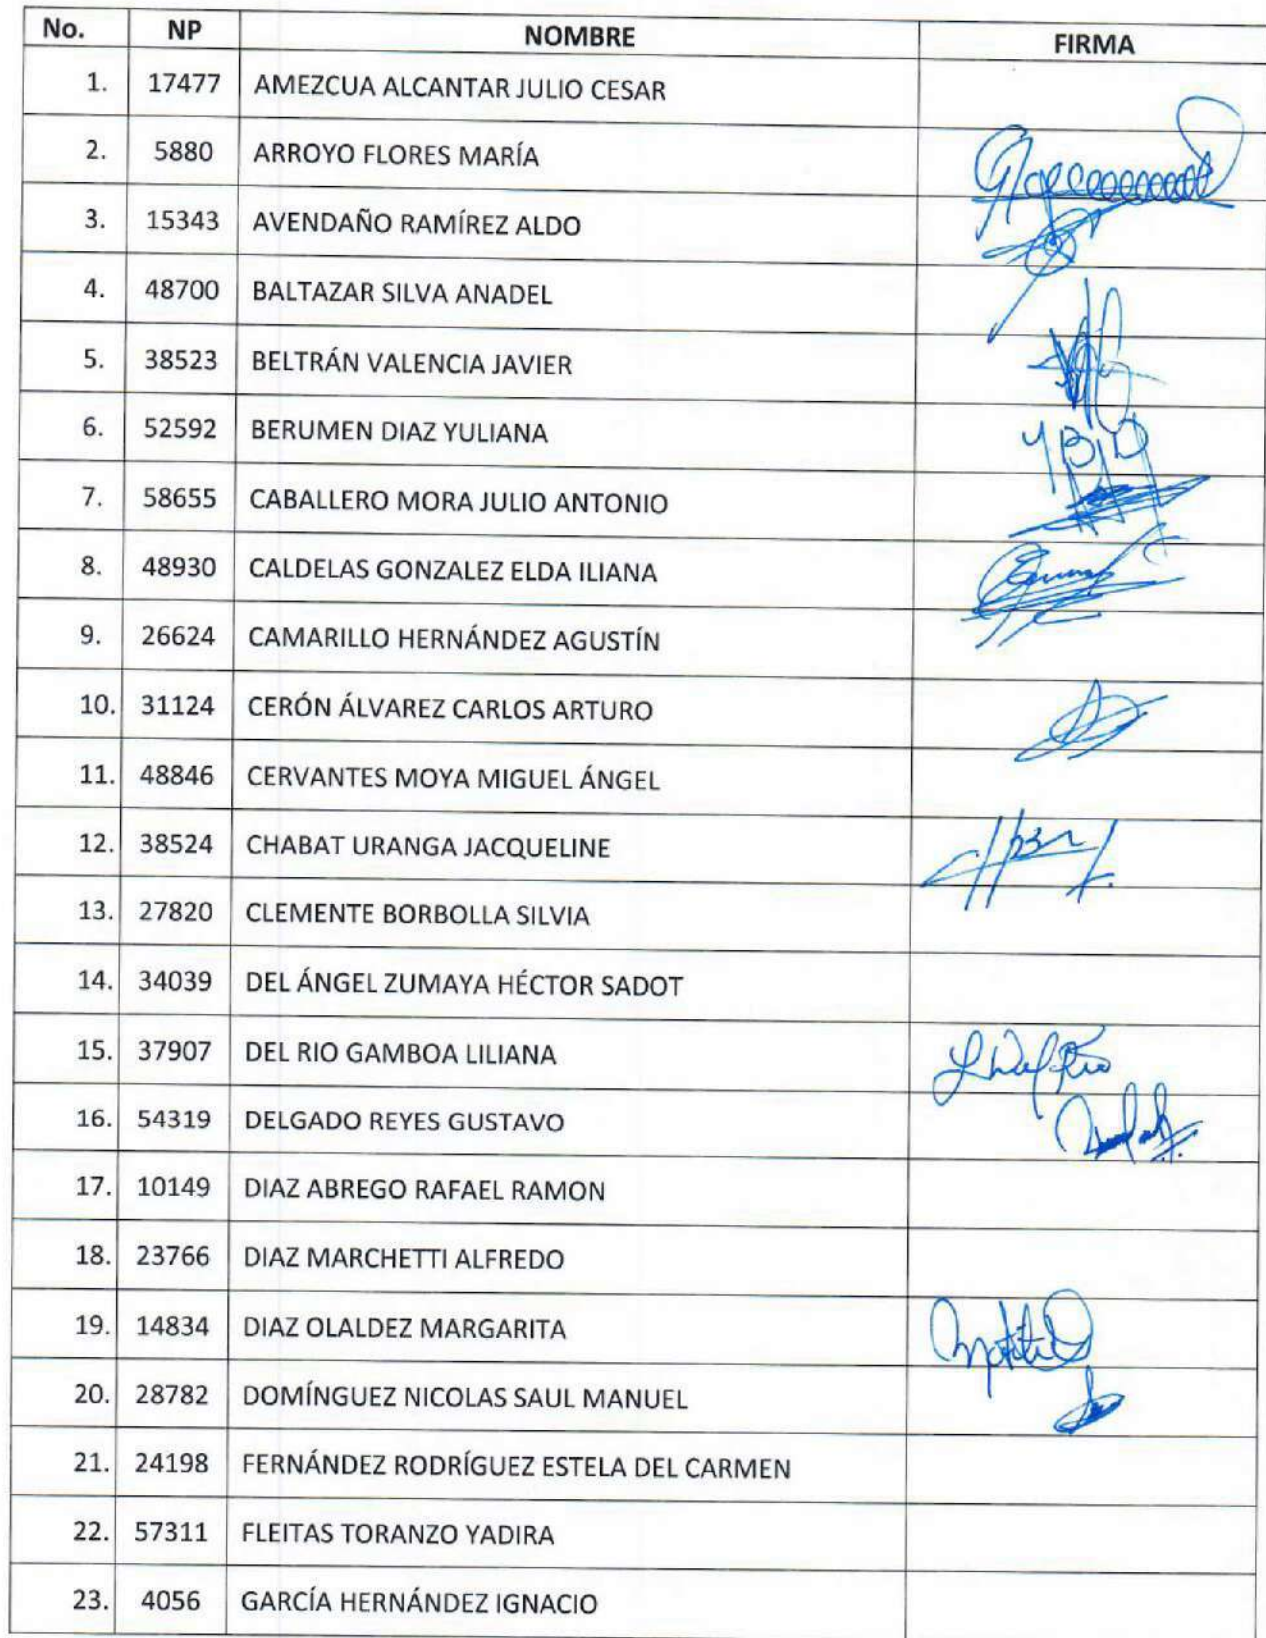 No. NP NOMBRE FIRMA
1. 17477 AMEZCUA ALCANTAR JULIO CESAR
2. 5880 ARROYO FLORES MARÍA
3. 15343 AVENDAÑO RAMÍREZ ALDO
4. 48700 BALTAZAR SILVA ANADEL
5. 38523 BELTRÁN VALENCIA JAVIER
6. 52592 BERUMEN DIAZ YULIANA YBD
7. 58655 CABALLERO MORA JULIO ANTONIO
8. 48930 CALDELAS GONZALEZ ELDA ILIANA
9. 26624 CAMARILLO HERNÁNDEZ AGUSTÍN
10. 31124 CERÓN ÁLVAREZ CARLOS ARTURO
11. 48846 CERVANTES MOYA MIGUEL ÁNGEL
12. 38524 CHABAT URANGA JACQUELINE
13. 27820 CLEMENTE BORBOLLA SILVIA
14. 34039 DEL ÁNGEL ZUMAYA HÉCTOR SADOT
15. 37907 DEL RIO GAMBOA LILIANA
16. 54319 DELGADO REYES GUSTAVO
17. 10149 DIAZ ABREGO RAFAEL RAMON
18. 23766 DIAZ MARCHETTI ALFREDO
19. 14834 DIAZ OLALDEZ MARGARITA
20. 28782 DOMÍNGUEZ NICOLAS SAUL MANUEL
21. 24198 FERNÁNDEZ RODRÍGUEZ ESTELA DEL CARMEN
22. 57311 FLEITAS TORANZO YADIRA
23. 4056 GARCÍA HERNÁNDEZ IGNACIO